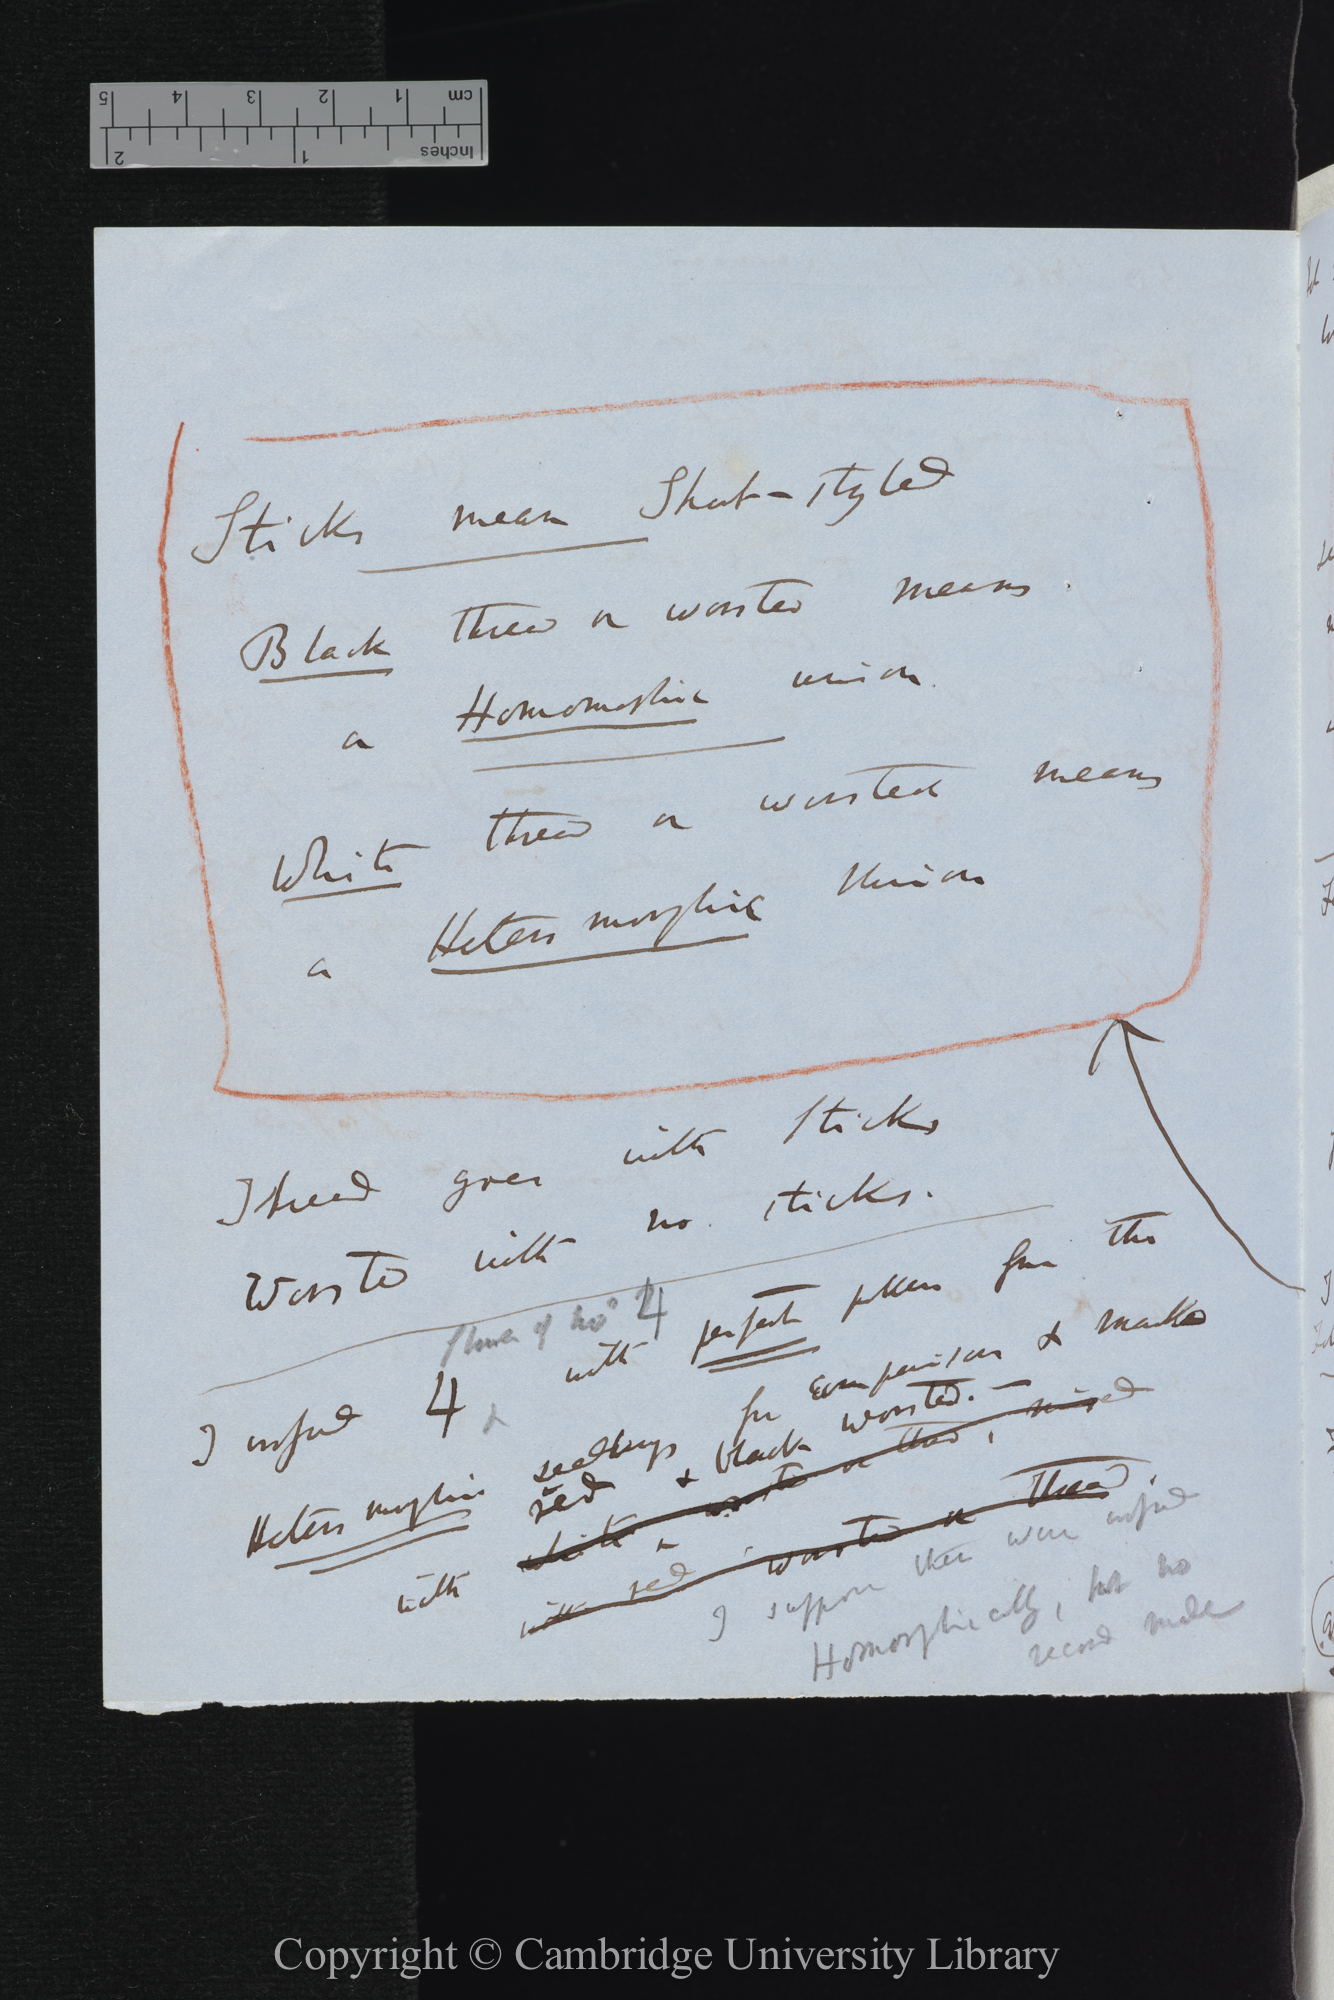 5 4 3 2 1 cm
2 1 Inches
Sticks mean Short-styled
Black thread or worsted means
a Homomorphic union.
White thread or worsted means
a Heteromorphic Union
Thread goes with Sticks
Worsted with no sticks.
flower of no° 4
I crossed 4 with perfect pollen from the
Heteromorphic seedlings for comparison & marked
with red & black worsted.
white or worsted or thread, mixed
with red worsted or thread.
I suppose these were crossed
Homorphically, but no
record made
Copyright © Cambridge University Library